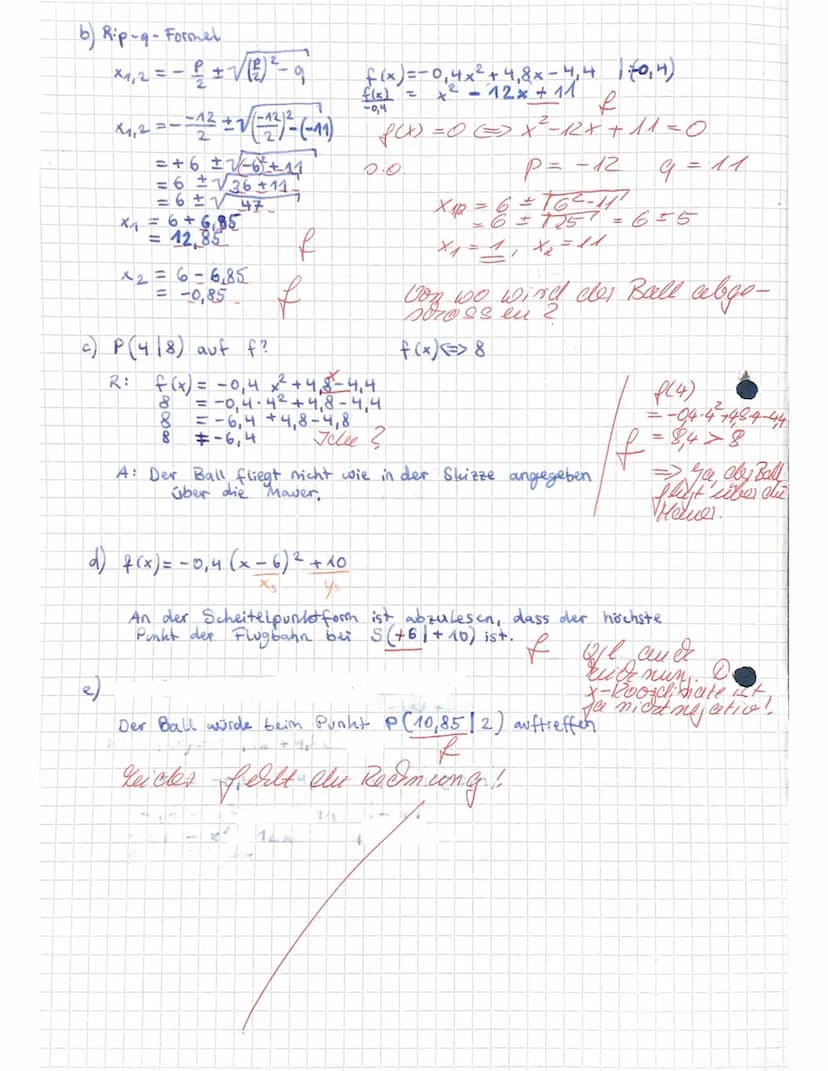 b) R: p-q-Formel
x₁,₂ = - p/2 ± √((p/2)² - q)
f(x) = -0,4x² + 4,8x - 4,4 | :(-0,4)
f(x)/-0,4 = x² - 12x + 11
f
x₁,₂ = - -12/2 ± √((-12/2)² - (-11))
f(x) = 0 <=> x² - 12x + 11 = 0
= +6 ± √(-6² + 11)
s.o.
p = -12 q = 11
= 6 ± √(36 + 11)
= 6 ± √47
x₁/₂ = 6 ± √(6² - 11)
= 6 ± √25 = 6 ± 5
x₁ = 6 + 6,85
= 12,85 f
x₁ = 1, x₂ = 11
x₂ = 6 - 6,85
= -0,85 f
Von wo wird der Ball abge-
schossen?
c) P(4|8) auf f?
f(x) <=> 8
R: f(x) = -0,4 x² + 4,8 - 4,4
x
8 = -0,4 · 4² + 4,8 - 4,4
8 = -6,4 + 4,8 - 4,8
8 ≠ -6,4
Idee?
f(4)
= -0,4·4² + 4,8·4 - 4,4
f = 8,4 > 8
=> Ja, der Ball
fliegt über die
Mauer.
A: Der Ball fliegt nicht wie in der Skizze angegeben
über die Mauer.
d) f(x) = -0,4 (x - 6)² + 10
xs ys
An der Scheitelpunktform ist abzulesen, dass der höchste
Punkt der Flugbahn bei S(+6|+10) ist.
f
x-Koordinate ist
ja nicht negativ!
e)
Der Ball würde beim Punkt P(10,85|2) auftreffen
f
Leider fehlt die Rechnung!